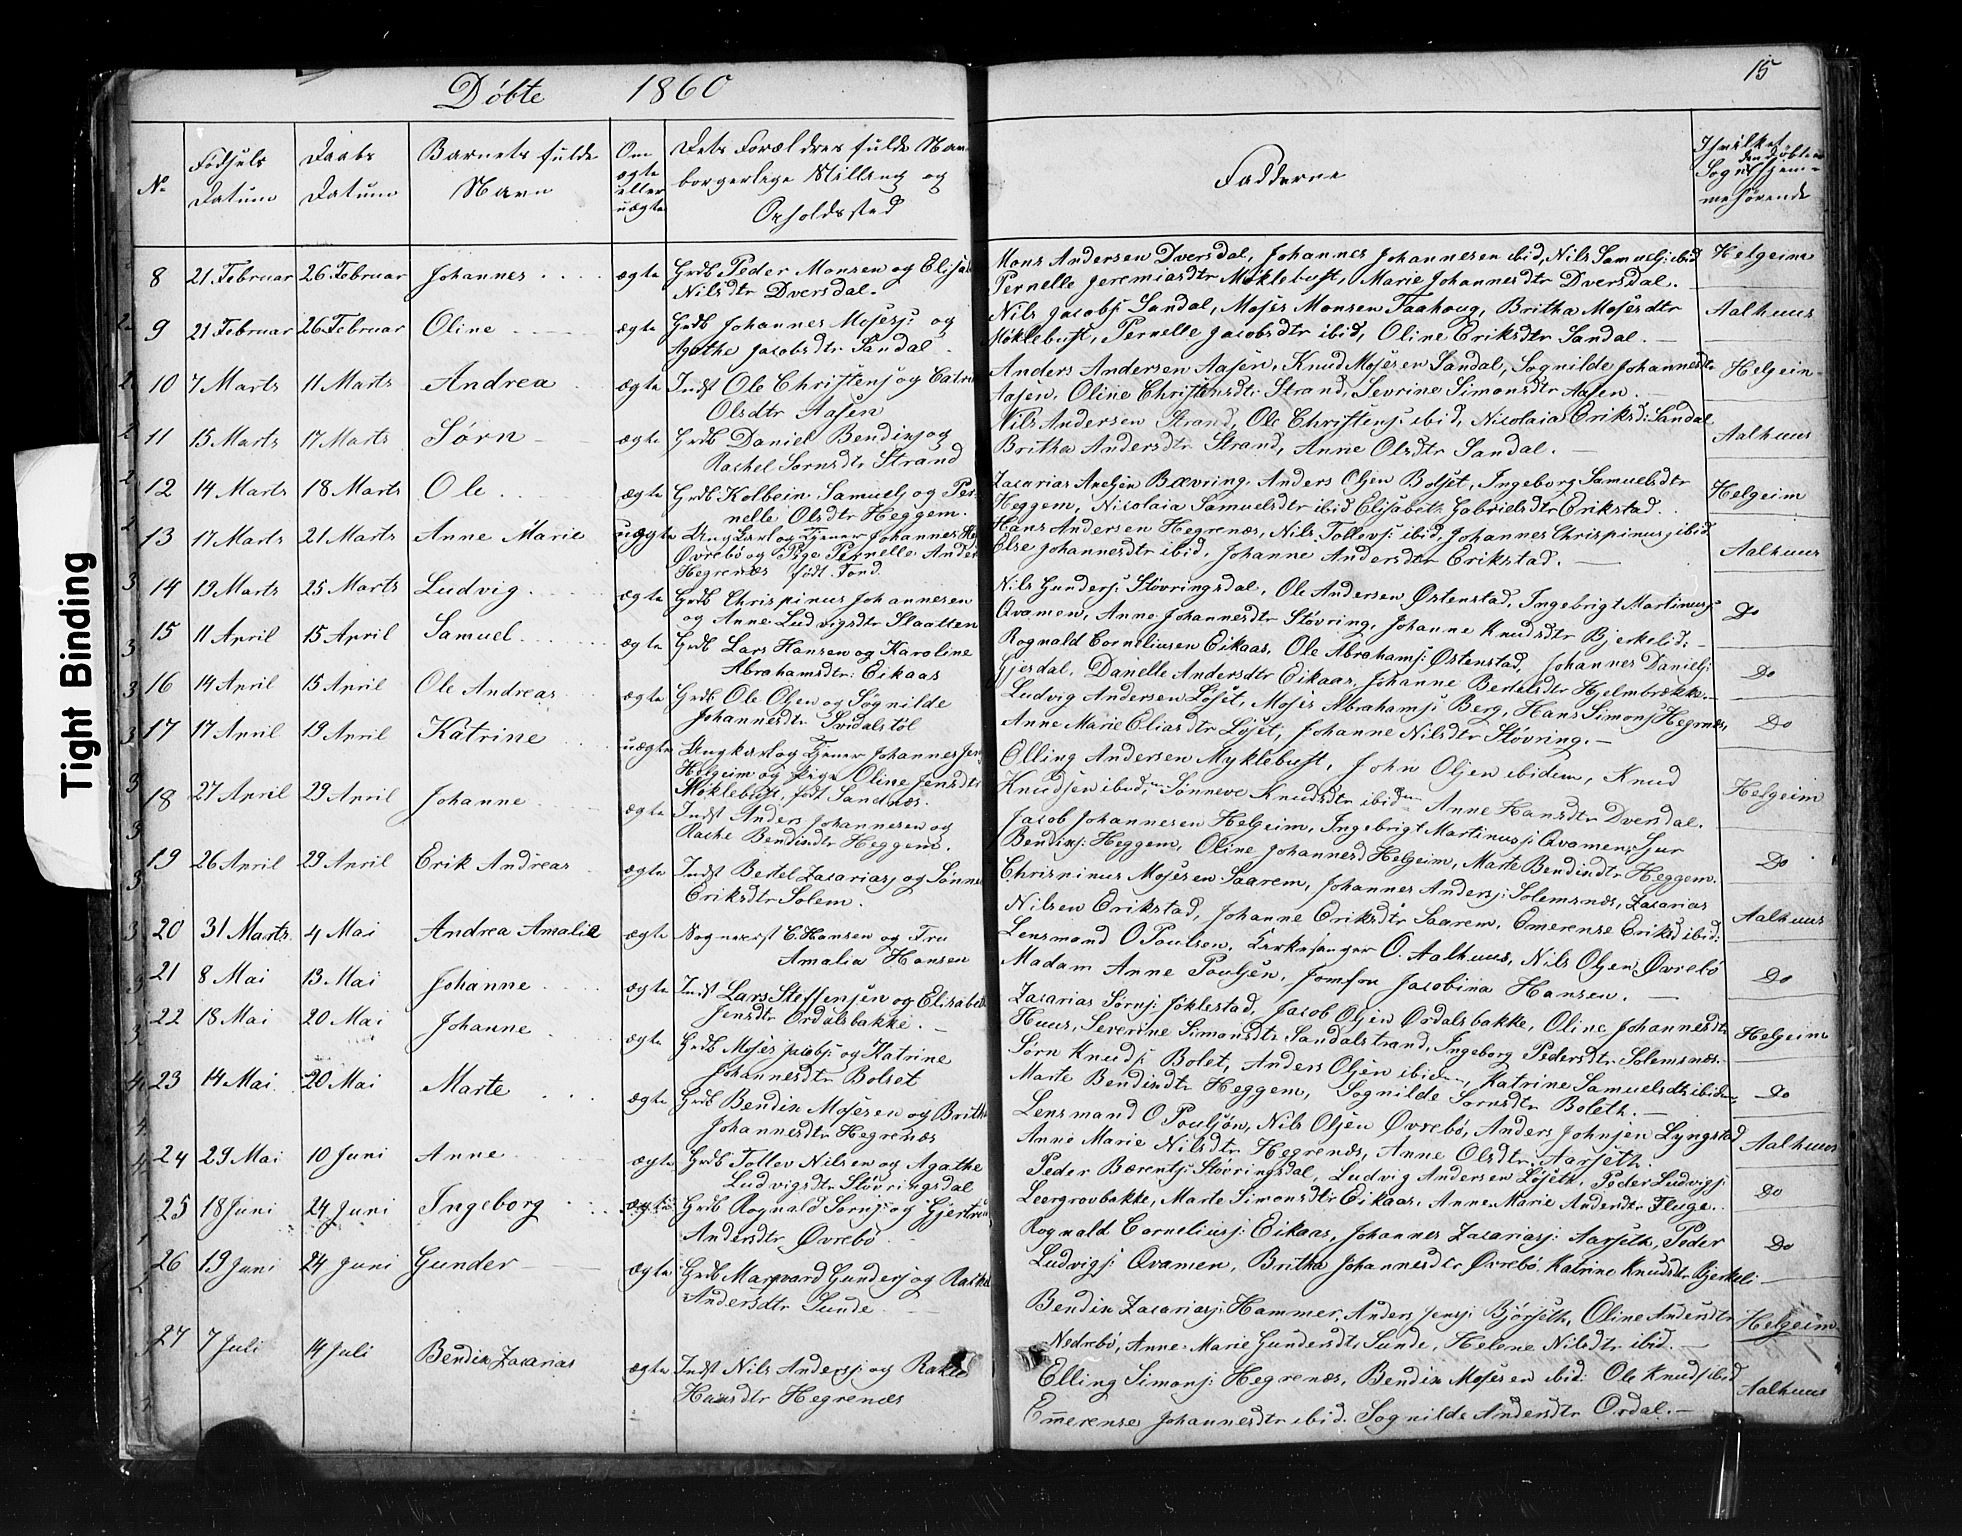 Døbte 1860
15
No
Fødsels Datum
Daabs Datum
Barnets fulde Navn
Om ægte eller uægte
Dets Forældres fulde Navn borgerlige Stilling og Opholdssted
Fadderne
I hvilket Sogn den døbte er hjemmehørende
8 21 Februar 26 Februar Johannes ægte Grdb Peder Monsen og Elisab
Nilsdtr Dversdal.
Mons Andersen Dversdal, Johannes Johannesen ibid, Nils Samuelsj ibid
Pernelle Jeremiasdtr Møklebust, Marie Johannesdtr Dversdal.
Helgeim
9 21 Februar 26 Februar Oline ægte Grdb Johannes Mosesj: og
Agathe Jacobsdtr Sandal
Nils Jacobsj Sandal, Moses Monsen Taahoug, Britha Mosesdtr
Møklebust, Pernelle Jacobsdtr ibid, Oline Eriksdtr Sandal.
Aalhuus
10 7 Marts 11 Marts Andrea ægte Indst Ole Christensj og Catri
Olsdtr Aasen
Anders Andersen Aasen, Knud Mosesen Sandal, Sognilde Johannesdtr
Aasen, Oline Christensdtr Strand, Sevrine Simonsdtr Aasen.
Helgeim
11 15 Marts 17 Marts Sørn ægte Grdb Daniel Bendixj og
Rachel Sørnsdtr Strand
Nils Andersen Strand, Ole Christensj ibid, Nicolaia Eriksd: Sandal
Britha Andersdtr Strand, Anne Olsdtr Sandal.
Aalhuus
12 14 Marts 18 Marts Ole ægte Grdb Kolbein Samuelsj og Per-
nelle Olsdtr Heggem.
Zacarias Axelsen Bævring, Anders Olsen Bolset, Ingeborg Samuelsdtr
Heggem, Nicolaia Samuelsdtr ibid Elisabeth Gabrielsdtr Erikstad.
Helgeim
13 17 Marts 21 Marts Anne Marie uægte Ung Karl og Tjener Johannes
Øvrebø og Pige Pernelle Anders
Hegrenæs født Fond
Hans Andersen Hegrenæs, Nils Tollevsj ibid, Johannes Chrispinusj ibid
Else Johannesdtr ibid, Johanne Andersdtr Erikstad.
Aalhuus
14 19 Marts 25 Marts Ludvig ægte Grdb Chrispinus Johannesen
og Anne Ludvigsdtr Slaatten
Nils Gundersj: Støvringsdal, Ole Andersen Østenstad, Ingebrigt Martinusj
Qvamen, Anne Johannesdtr Støvring, Johanne Knudsdtr Bjerkelid:
Do
15 11 April 15 April Samuel ægte Grdb Lars Hansen og Karoline
Abrahamsdtr: Eikaas
Rognald Corneliusen Eikaas, Ole Abrahamsj: Østenstad, Johannes Danielsj:
Gjesdal, Danelle Andersdtr Eikaas, Johanne Bertelsdtr Hjelmbrække.
Do
16 14 April 15 April Ole Andreas ægte Grdb Ole Olsen og Søgnilde
Johannesdtr Sandalstøl
Ludvig Andersen Løset, Moses Abrahamsj Berg, Hans Simonsj Hegrnæs,
Anne Marie Eliasdtr Løset, Johanne Nilsdtr Støvring.
Do
17 17 April 19 April Katrine uægte Ungkarl og Tjener Johannes Jen
Helgeim og Pige Oline Jensdtr
Møklebust, født Sandnæs.
Elling Andersen Myklebust, John Olsen ibidem, Knud
Knudsen ibidem, Sønneve Knudsdtr ibidem Anne Hansdtr Dversdal.
Helgeim
18 27 April 29 April Johanne ægte Indst Anders Johannesen og
Rache Bendixdtr Heggem.
Jacob Johannesen Helgeim, Ingebrigt Martinusj Qvamen, Sjur
Bendixj: Heggem, Oline Johannesd Helgeim, Marte Bendixdtr Heggem.
Do
19 26 April 29 April Erik Andreas ægte Indst Bertel Zacariasj og Sønne
Eriksdtr Solem.
Chrispinus Mosesen Saarem, Johannes Andersj: Solemsnæs, Zacarias
Nilsen Erikstad, Johanne Eriksdtr Saarem, Emerense Eriksd ibid:
Aalhuus
20 31 Marts 4 Mai Andrea Amalie ægte Sognepræst C. Hansen og Fru
Amalia Hansen
Lensmand O Poulsen, Kirkesanger O. Aalhuus, Nils Olsen Øvrebø
Madam Anne Poulsen, Jomfru Jacobina Hansen.
Do
21 8 Mai 13 Mai Johanne ægte Indst Lars Steffensen og Elisabeth
Jensdtr Ordalsbakke.
Zacarias Sørnsj: Jöklestad, Jacob Olsen Ordalsbakke, Oline Johannesdtr
Huus, Severine Simonsdtr Sandalstrand, Ingeborg Pedersdtr Solemsnæs.
Helgeim
22 18 Mai 20 Mai Johanne ægte Grdb Moses Jacobsj: og Katrine
Johannesdtr Bolset
Sørn Knudsj: Bolet, Anders Olsen ibidem, Katrine Samuelsdtr ibidem,
Marte Bendixdtr Heggem, Sognilde Sørnsdtr Boleth.
Do
23 14 Mai 20 Mai Marte ægte Grdb Bendix Mosesen og Brith
Johannesdtr Hegrenæs
Lensmand O Poulsøn, Nils Olsen Øvrebø, Anders Johnsen Lyngstad
Anne Marie Nilsdtr Hegrenæs, Anne Olsdtr Aarseth.
Aalhuus
24 29 Mai 10 Juni Anne ægte Grdb Tollev Nilsen og Agathe
Ludvigsdtr Støvringsdal
Peder Bærentsj: Støvringsdal, Ludvig Andersen Løseth, Peder Ludvigsj
Leergrovbakke, Marte Simonsdtr Eikaas, Anne Marie Andersdtr Fluge.
Do
25 18 Juni 24 Juni Ingeborg ægte Grdb Rognald Sørnsj: og Gjertru
Andersdtr Øvrebø
Rognald Corneliusj: Eikaas, Johannes Zacariasj: Aarseth, Peder
Ludvigsj Qvamen, Britha Johannesdtr Øvrebø. Katrine Knudsdtr Bjerkeli
Do
26 19 Juni 24 Juni Gunder ægte Grdb Marqvard Gundersj og Rakel
Andersdtr Sunde
Bendix Zacariasj: Hammer, Anders Jensj: Bjørseth, Oline Andersdtr
Nedrebø, Anne Marie Gundersdtr Sunde, Helene Nilsdtr ibid.
Helgeim
27 7 Juli 14 Juli Bendix Zacarias ægte Indst Nils Andersj og Rakel
Hansdtr Hegrenæs
Elling Simonsj: Hegrenæs, Bendix Mosesen ibid: Ole Knudsj ibid
Emerense Johannesdtr ibid. Sognilde Andersdtr Ordal.
Aalhuus
Tight Binding